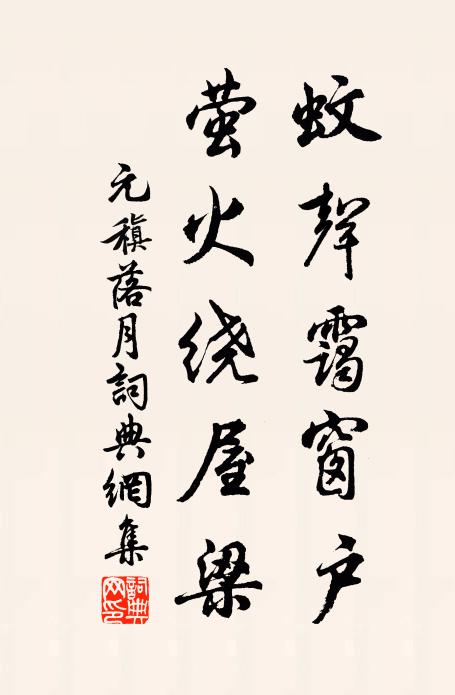 蚊聲靄窗户
萤火绕屋梁
元稹落月詞典網集
詞典网印